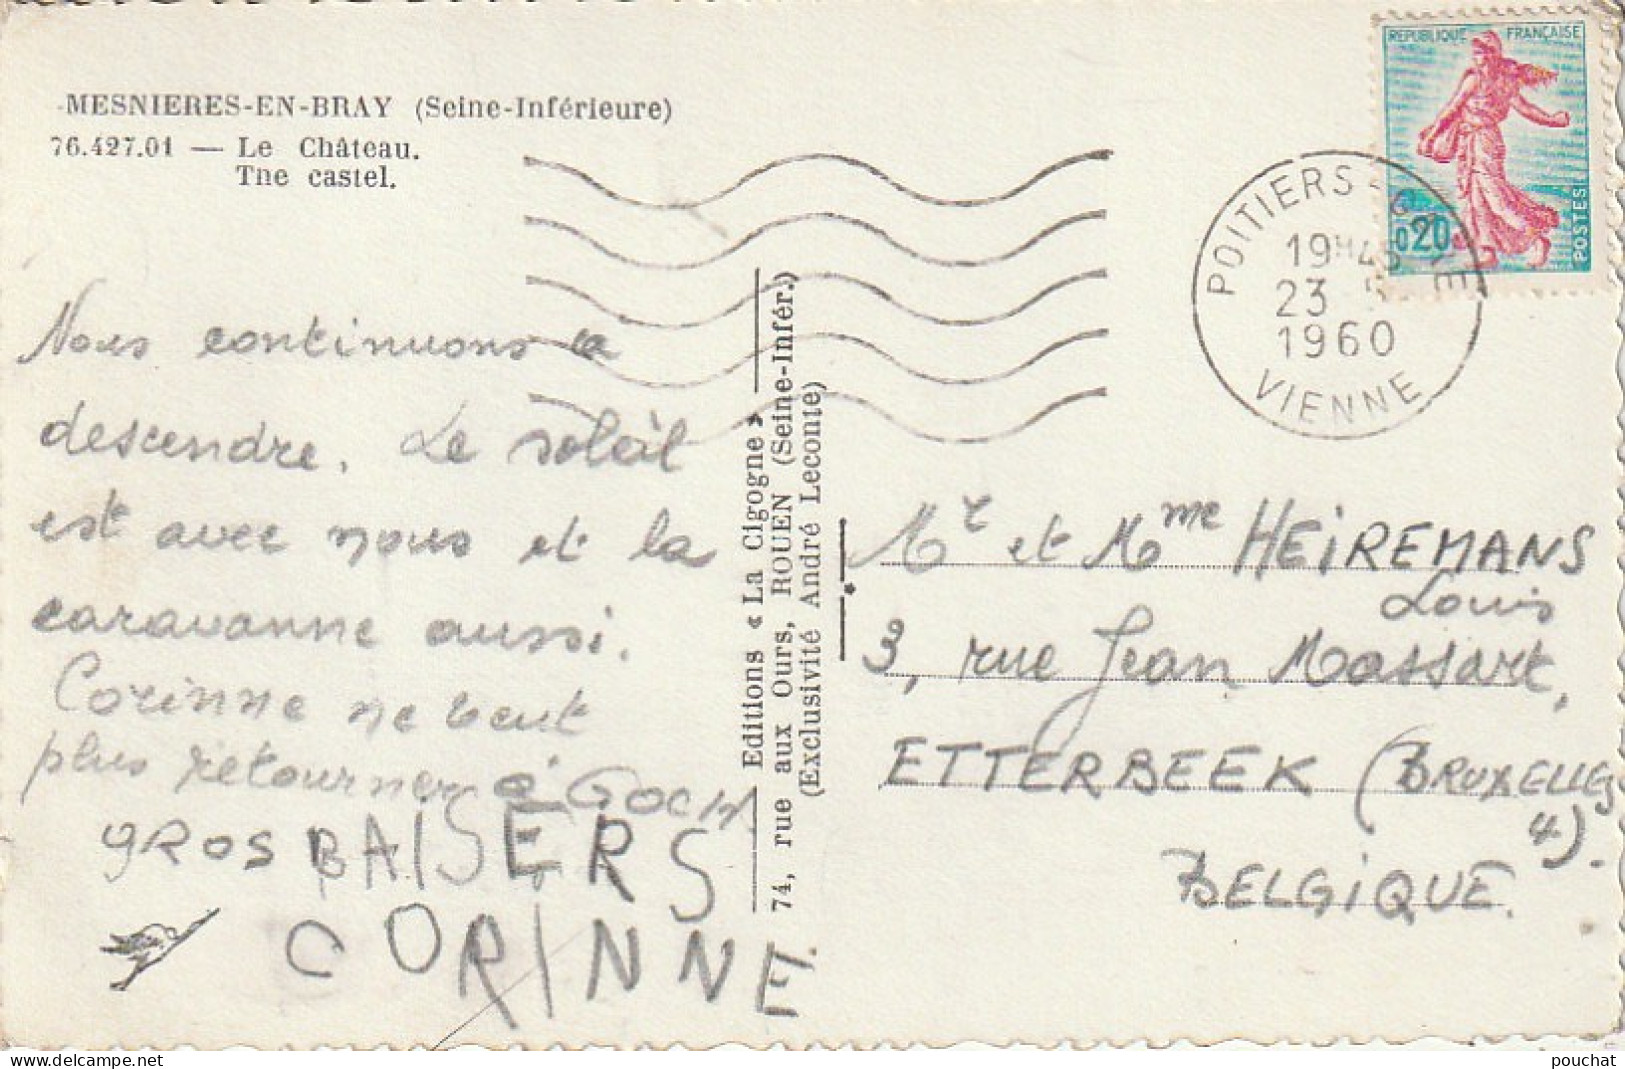 MESNIERES-EN-BRAY (Seine-Inférieure)
76.427.01 — Le Château.
The castel.
REPUBLIQUE FRANÇAISE
0,20
POSTES
POITIERS -
19H45
23
1960
VIENNE
Nous continuons a
descendre. Le soleil
est avec nous et la
caravanne aussi.
Corinne ne veut
plus retourner à GOCH
gROS BAISERS
CORINNE
Editions « La Cigogne »
74, rue aux Ours, ROUEN (Seine-Infér.)
(Exclusivité André Leconte)
Mr et Mme HEIREMANS
Louis
3, rue Jean Massart,
ETTERBEEK (BRUXELLES
4).
BELGIQUE.
pouchat
delcampe.net